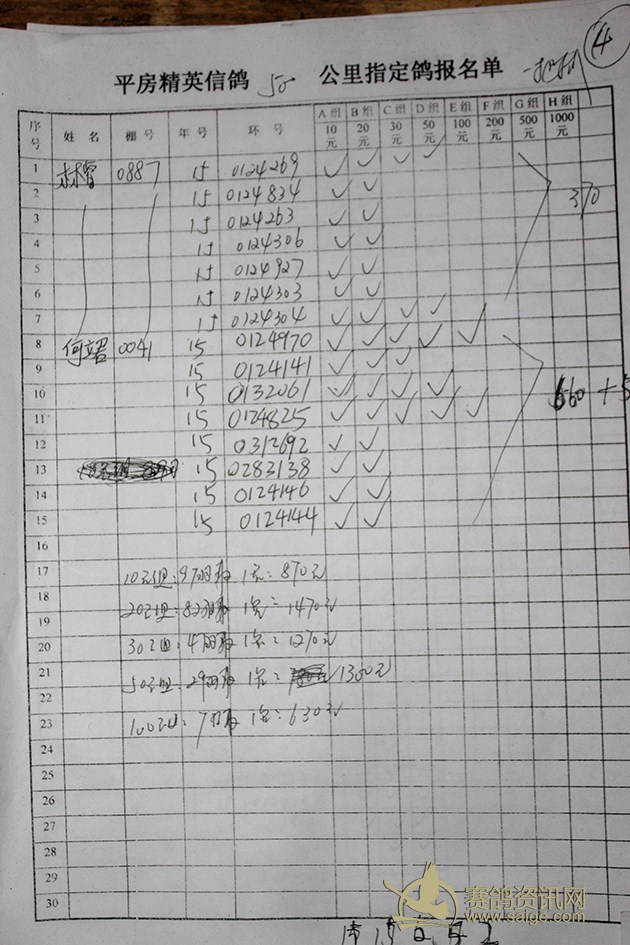 ④
平房精英信鸽 50 公里指定鸽报名单
序号 姓 名 棚 号 年 号 环 号 A 组 10 元 B 组 20 元 C 组 30 元 D 组 50 元 E 组 100 元 F 组 200 元 G 组 500 元 H 组 1000 元
1 0887 15 0124269 ✓ ✓ ✓ ✓
2 15 0124834 ✓ ✓ 370
3 15 0124263 ✓ ✓
4 15 0124306 ✓ ✓
5 15 0124927 ✓ ✓
6 15 0124303 ✓ ✓
7 15 0124304 ✓ ✓ ✓ ✓
8 0041 15 0124970 ✓ ✓ ✓ ✓ ✓
9 15 0124141 ✓ ✓ ✓
10 15 0132061 ✓ ✓ ✓ ✓ 560 + 5
11 15 0124825 ✓ ✓ ✓ ✓ ✓
12 15 0312692 ✓ ✓
13 15 0283138 ✓ ✓
14 15 0124146 ✓ ✓
15 15 0124144 ✓ ✓
16
17 10元组:97羽 1名:870元
18
19 20元组:82羽 1名:1470元
20 30元组:47羽 1名:1270元
21
22 50元组:29羽 1名: 1300元
23 100元组:7羽 1名:630元
24
25
26
27
28
29
30
赛鸽资讯网
www.saige.com